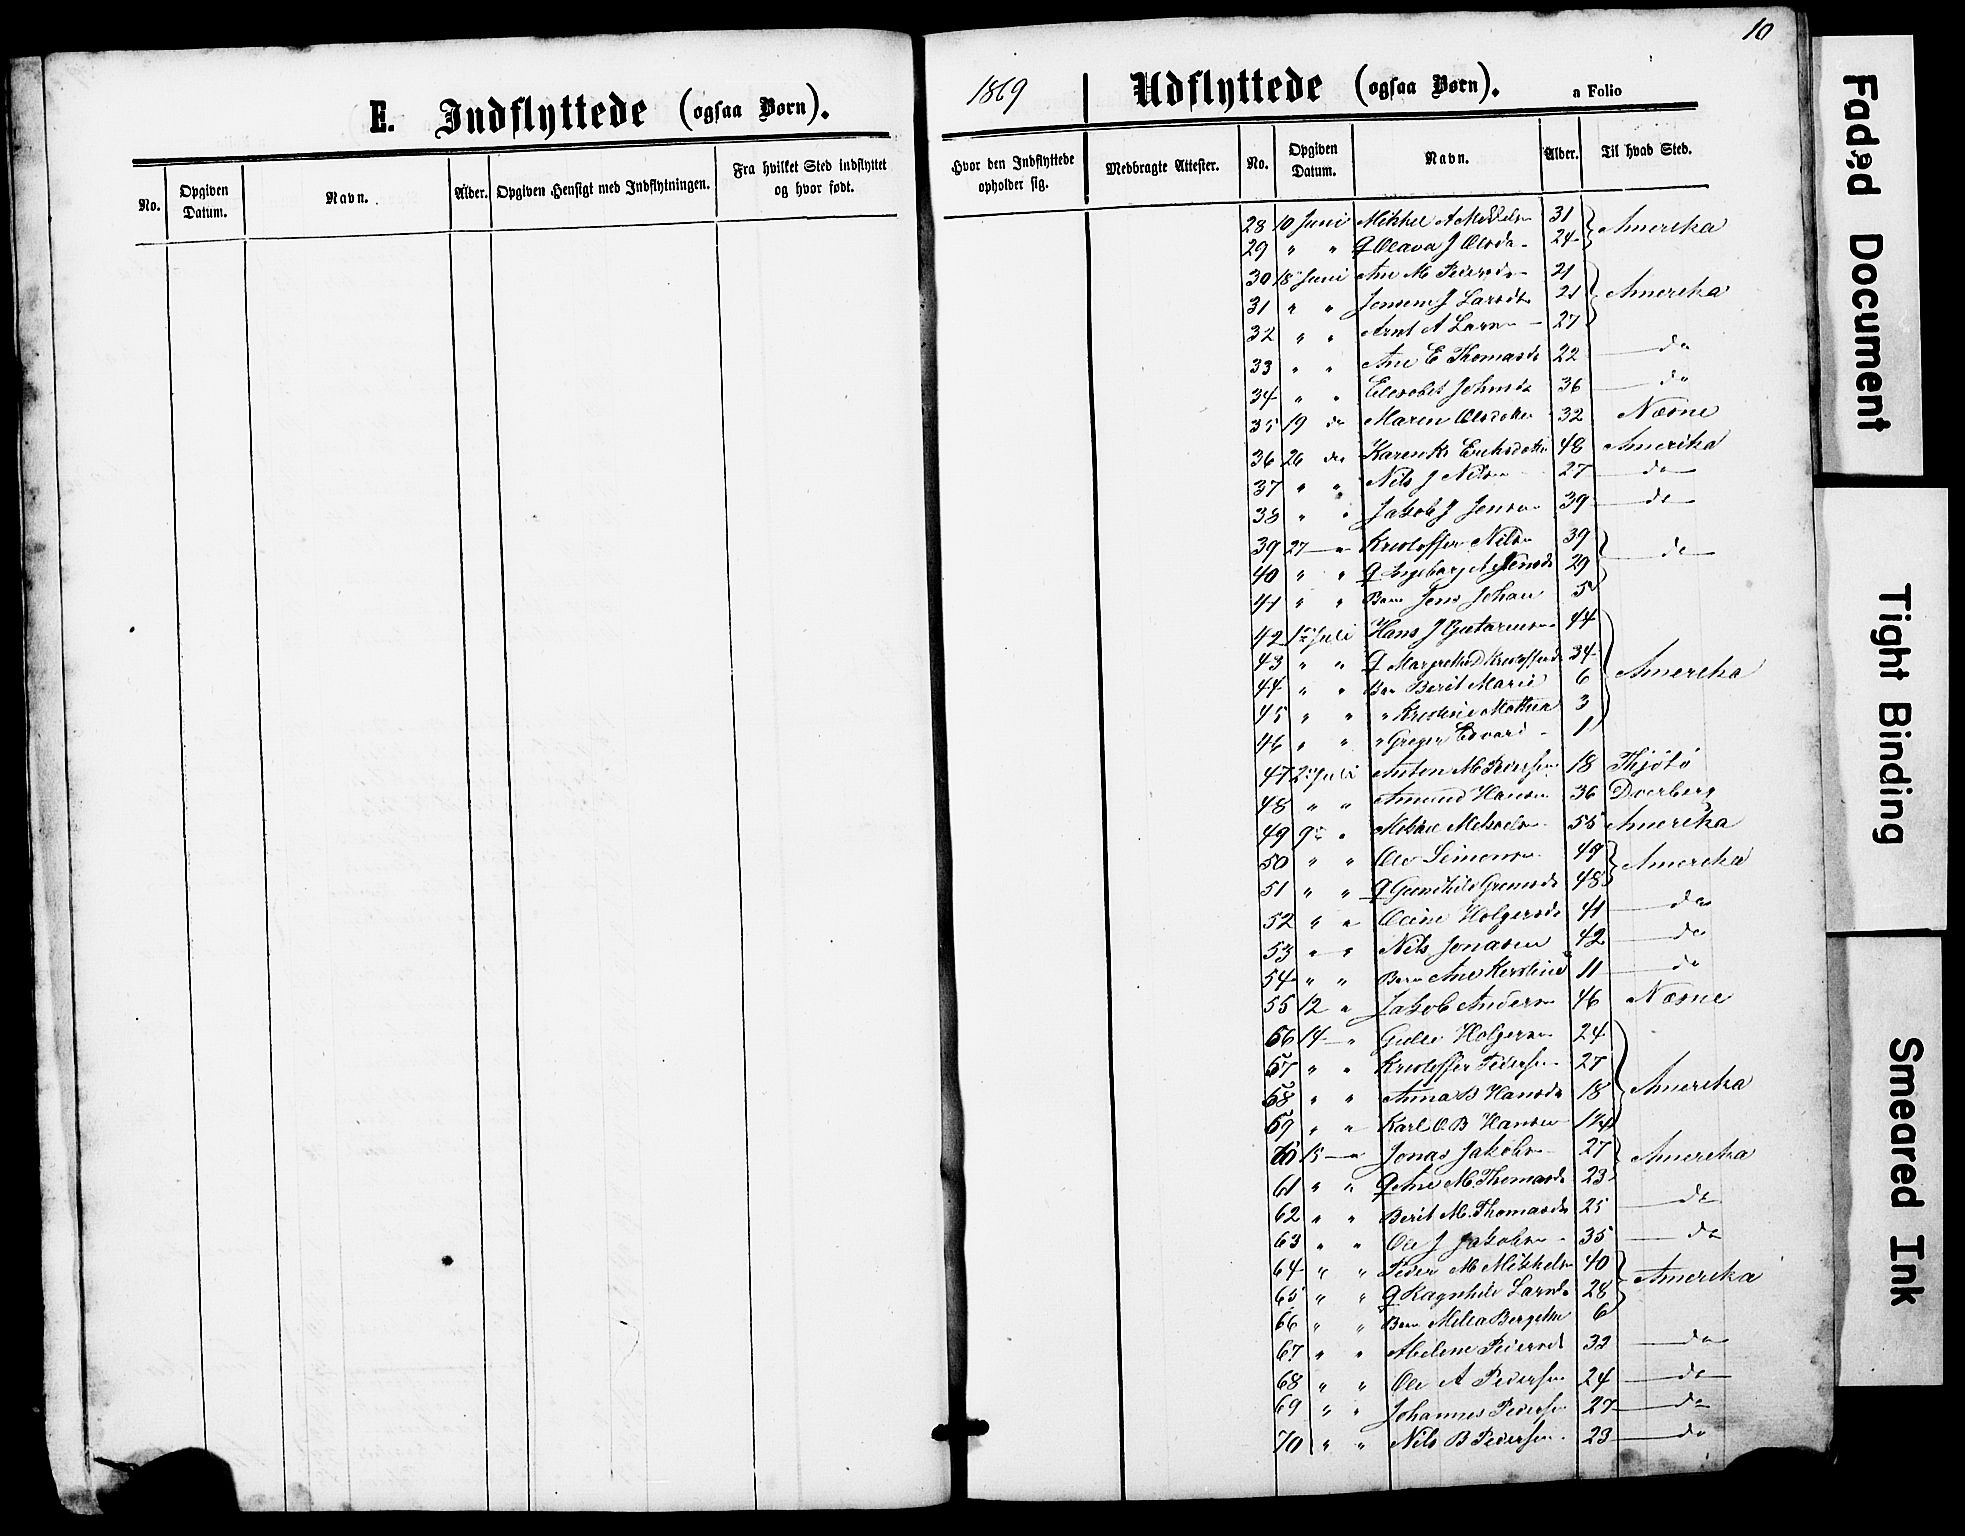 10
E. Indflyttede (ogsaa Børn).
No. Opgiven Datum. Navn. Alder. Opgiven Hensigt med Indflytningen. Fra hvilket Sted indflyttet og hvor født.
1869 Udflyttede (ogsaa Børn). a Folio
Hvor den Indflyttede opholder sig. Medbragte Attester. No. Opgiven Datum. Navn. Alder. Til hvad Sted.
28 10 Juni Mikkel A 31 Amerika
29 " " Q Olava J Olsd 24
30 18 Juni Ane M Pedersd 21
31 " " J Larsdt 21 Amerika
32 " " Arnt A Larsn 27
33 " " Ane E Thomasdt 22 do
34 " " Elisabet Johnsdt 36 do
35 19 do Maren Olsdotter 32 Næsne
36 26 do Karen K 48 Amerika
37 " " Nils J Nilsn 27 do
38 " " Jakob J Jensn 39 do
39 27 " Kristoffer Nilsn 39 do
40 " " Q Ingeborg A Jensdt 29
41 " " Barn Jens Johan 5
42 1ste Juli Hans J 44
43 " " Q Kristoffersdt 34
44 " " Barn Berit Marie 6 Amerika
45 " " " Kristine Mathea 3
46 " " " Greger Edvard 1
47 2 Juli Anton M Pedersen 18 Thjøtø
48 " " Amund Hansen 36 Dverberg
49 9 " 55 Amerika
50 " " Ole Simonsn 49 Amerika
51 " " Q Gunhild 48
52 " " Oline Holgersdt 41 do
53 " " Nils Jonasen 42 do
54 " " Barn Ane Kirstine 11 do
55 12 " Jakob Andersn 46 Næsne
56 14 " Holgersn 24
57 " " Kristoffer Pedersen 27
58 " " Anna B Hansdt 18 Amerika
59 " " Karl O. B Hansen 1 3/4
60 15 " Jonas Jakobsn 27 Amerika
61 " " Q Ane M Thomasdt 23
62 " " Berit M. Thomasdt 25 do
63 " " Ole J Jakobsn 35 do
64 " " Peder M Mikkelsn 40 Amerika
65 " " Q Ragnhild Larsdt 28
66 " " Barn Bergethe 6
67 " " Abelone Pedersdt 32 do
68 " " Ole A Pedersen 24 do
69 " " Johannes Pedersen 27 do
70 " " Nils B Pedersen 23 do
Faded Document
Tight Binding
Smeared Ink